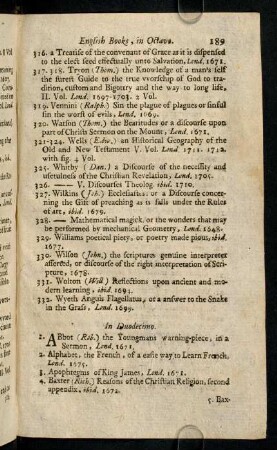 English Books, in Octavo. 189
316. a Treatise of the convenant of Grace as it is dispensed
to the elect seed effectually unto Salvation, Lond. 1671.
317. 318. Tryon (Thom.) the Knowledge of a man's self
the surest Guide to the true worschip of God to tra-
dition, custom and Bigotry and the way to long life,
II. Vol. Lond. 1697-1703. 2 Vol.
319. Venning (Ralph.) Sin the plague of plagues or sinful
sin the worst of evils, Lond. 1669.
320. Watson (Thom.) the Beatitudes or a discourse upon
part of Christs Sermon on the Mount, Lond. 1671,
321-324. Wells (Edw.) an Historical Geography of the
Old and New Testament V. Vol. Lond. 1711. 1712.
with fig. 4 Vol.
325. Whitby (Dan.) a Discourse of the necessity and
usefulness of the Christian Revelation, Lond. 1705.
326. —— V. Discourses Theolog. ibid. 1710.
327. Wilkins (Joh.) Ecclesiastes: or a Discourse concer-
ning the Gift of preaching as it falls under the Rules
of art, ibid. 1679.
328. —— Mathematical magick, or the wonders that may
be performed by mechanical Geometry, Lond. 1648.
329. Williams poetical piety, or poetry made pious, ibid.
1677.
330. Wilson (Joh.) the scriptures genuine interpreter
asserted, or discourse of the right interpretation of Scrip-
pture, 1678.
331. Wolton (Will.) Reflections upon ancient and mo-
dern learning, ibid.
332. Wyeth Anguis Flagellatus, or a answer to the Snake
in the Grass, Lond. 1699.
In Duodecimo.
1. ABbot (Rob.) the Youngmans warning-piece, in a
Sermon, Lond. 1671.
2. Alphabet, the French, of a easie way to Learn French,
Lond. 1675.
3. Apophtegms of King James, Lond. 1671.
4. Baxter (Rich.) Reasons of the Christian Religion, second
appendix, ibid. 1672.
5. Bax-